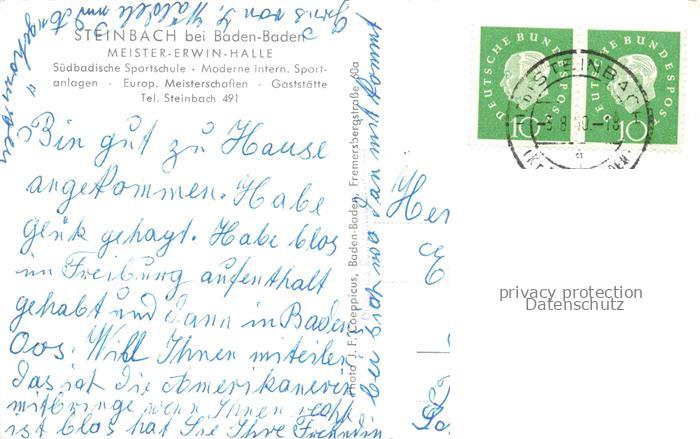 STEINBACH bei Baden-Baden
MEISTER-ERWIN-HALLE
Südbadische Sportschule · Moderne intern. Sport-
anlagen · Europ. Meisterschaften · Gaststätte
Tel. Steinbach 491
Bin gut zu Hause
angekommen. Habe
glük gehagt. Habe blos
im Freiburg aufenthalt
gehabt und dann in Baden
Oos. Will Ihnen mitteilen
das ist die Amerikanerin
mitbringe wenn Ihnen
ist blos hat Sie Ihre Freundin
Photo J. F. Coeppicus, Baden-Baden, Fremersbergstraße 60a
mit kommt
Her
DEUTSCHE BUNDESPOST
10
DEUTSCHE BUNDESPOST
10
STEINBACH
privacy protection
Datenschutz